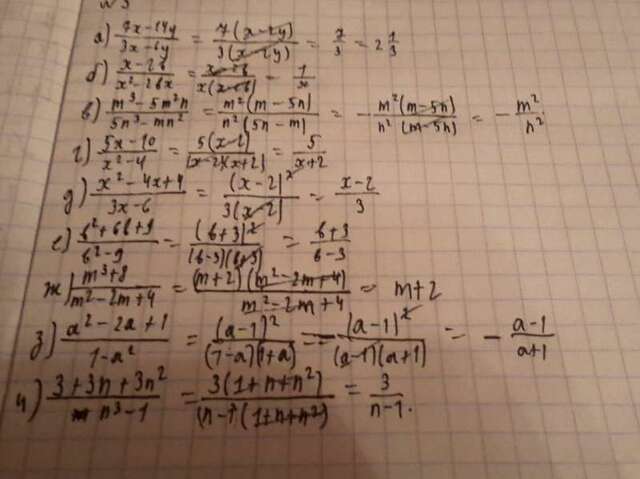 №3
а) (7x-14y)/(3x-6y) = 7(x-2y)/3(x-2y) = 7/3 = 2 1/3
б) (x-2b)/(x²-2bx) = (x-2b)/x(x-2b) = 1/x
в) (m³-5m²n)/(5n³-mn²) = m²(m-5n)/n²(5n-m) = -m²(m-5n)/n²(m-5n) = -m²/n²
г) (5x-10)/(x²-4) = 5(x-2)/(x-2)(x+2) = 5/(x+2)
д) (x²-4x+4)/(3x-6) = (x-2)²/3(x-2) = (x-2)/3
е) (b²+6b+9)/(b²-9) = (b+3)²/(b-3)(b+3) = (b+3)/(b-3)
ж) (m³+8)/(m²-2m+4) = (m+2)(m²-2m+4)/(m²-2m+4) = m+2
з) (a²-2a+1)/(1-a²) = (a-1)²/(1-a)(1+a) = -(a-1)²/(a-1)(a+1) = -(a-1)/(a+1)
и) (3+3n+3n²)/(n³-1) = 3(1+n+n²)/(n-1)(1+n+n²) = 3/(n-1).